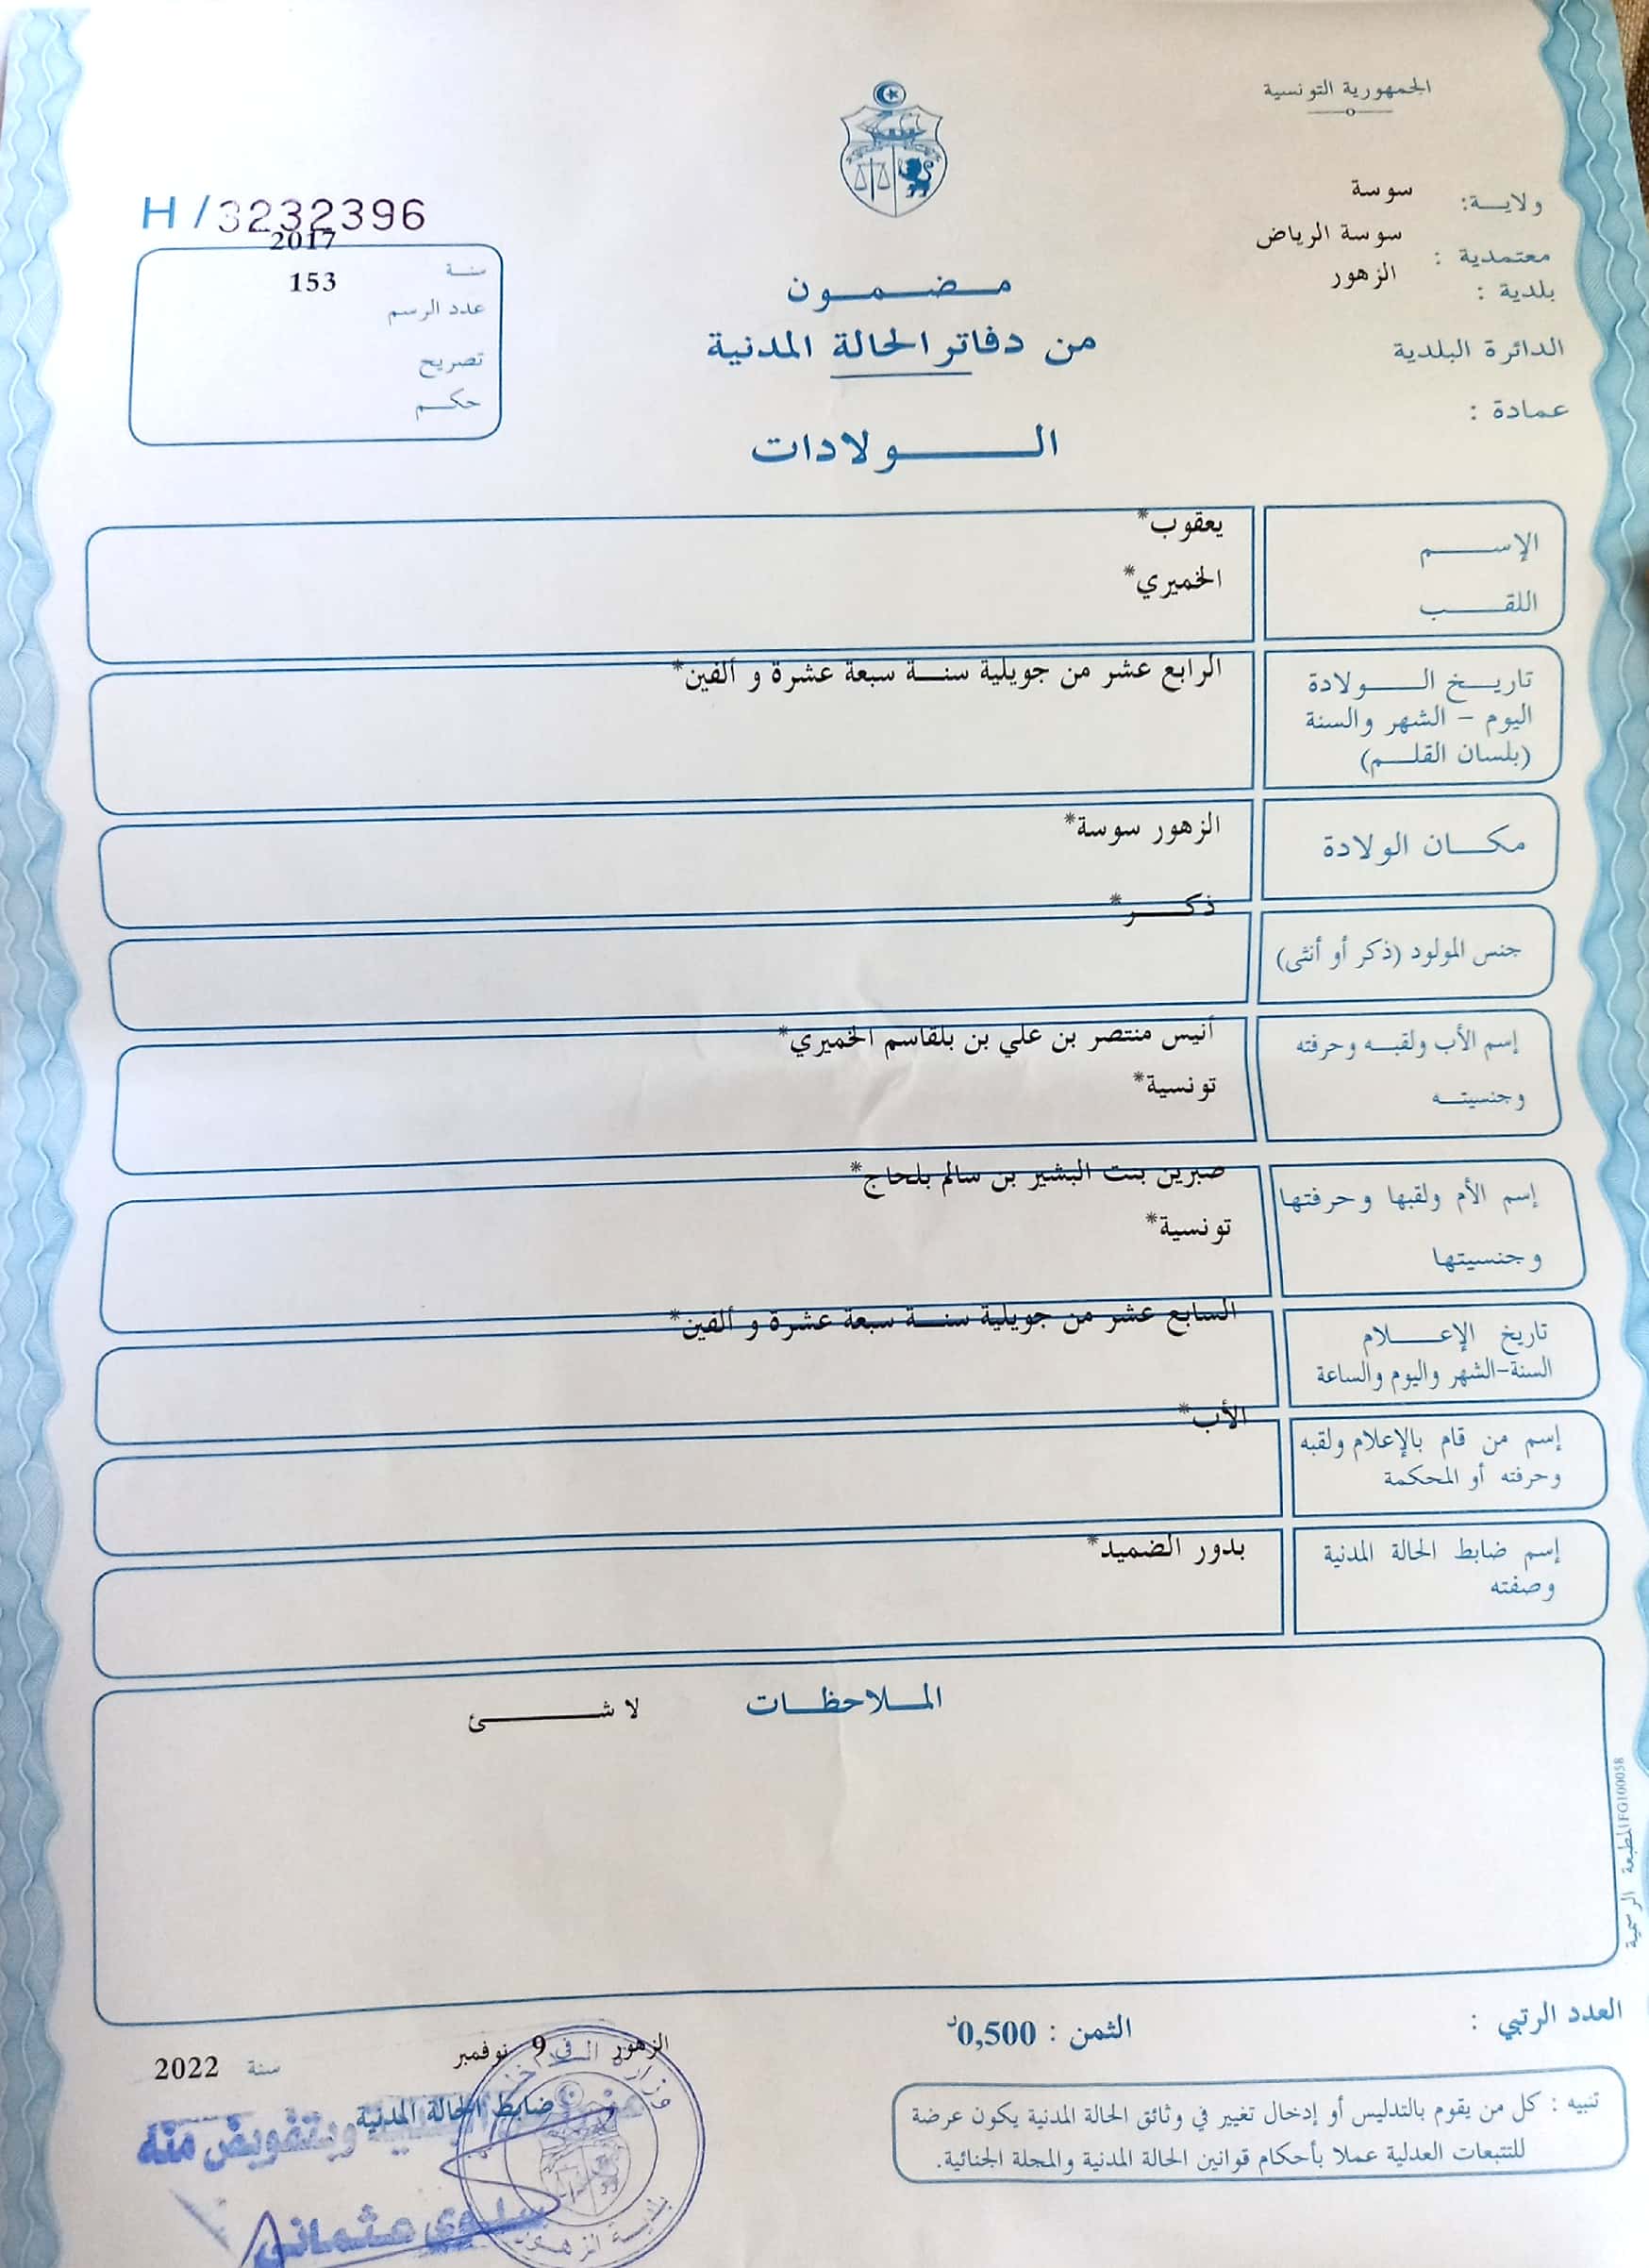 الجمهورية التونسية
ولاية: سوسة
معتمدية : سوسة الرياض
بلدية : الزهور
الدائرة البلدية
عمادة :
H/3232396
سنة 2017
عدد الرسم 153
تصريح
حكم
مضمون
من دفاتر الحالة المدنية
الولادات
الإسم يعقوب*
اللقب الخميري*
تاريخ الولادة الرابع عشر من جويلية سنة سبعة عشرة و ألفين*
اليوم - الشهر والسنة
(بلسان القلم)
مكان الولادة الزهور سوسة*
جنس المولود (ذكر أو أنثى) ذكر*
إسم الأب ولقبه وحرفته أنيس منتصر بن علي بن بلقاسم الخميري*
وجنسيته تونسية*
إسم الأم ولقبها وحرفتها صبرين بنت البشير بن سالم بلحاج*
وجنسيتها تونسية*
تاريخ الإعلام السابع عشر من جويلية سنة سبعة عشرة و ألفين*
السنة-الشهر واليوم والساعة
إسم من قام بالإعلام ولقبه الأب*
وحرفته أو المحكمة
إسم ضابط الحالة المدنية بدور الضميد*
وصفته
الملاحظات لا شئ
المطبعة الرسمية FG100058
العدد الرتبي :
الثمن : 0,500د
الزهور في 9 نوفمبر سنة 2022
ضابط الحالة المدنية
وبتفويض منه
سلوى عثماني
بلدية الزهور
تنبيه : كل من يقوم بالتدليس أو إدخال تغيير في وثائق الحالة المدنية يكون عرضة
للتتبعات العدلية عملا بأحكام قوانين الحالة المدنية والمجلة الجنائية.